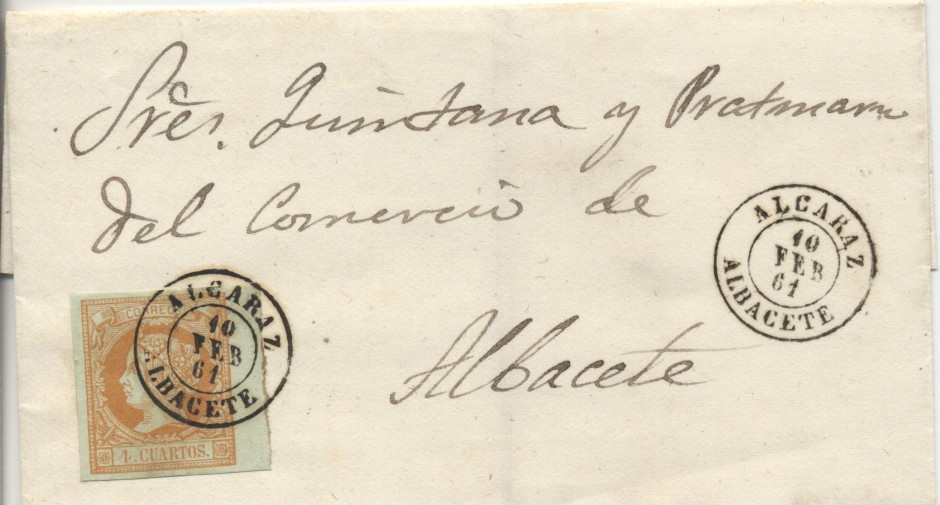 Sres. Quintana y Pratmarn
del Comercio de
Albacete
ALCARAZ
10
FEB
61
ALBACETE
CORREOS
4 CUARTOS.
ALCARAZ
10
FEB
61
ALBACETE